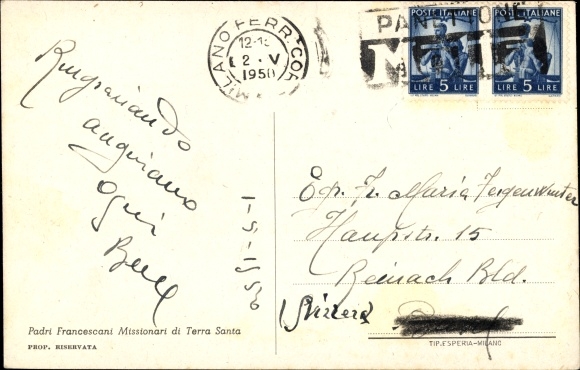 MILANO FERR. COR.
12-1
2 · V
1950
PANETTONE
POSTE ITALIANE
POSTE ITALIANE
LIRE 5 LIRE
LIRE 5 LIRE
Ringraziando
auguriamo
ogni
Bene
1-5-1950
Egr. Fr. Maria
Hauptstr. 15
Reinach Bld.
(Svizzera)
Padri Francescani Missionari di Terra Santa
PROP. RISERVATA
TIP. ESPERIA-MILANO